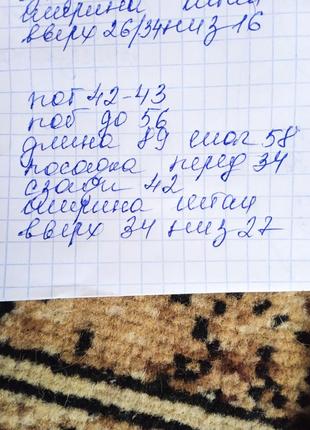 ширина штан
вверх 26/34 низ 16
пот 42-43
поб до 56
длина 89 шаг 58
посадка перед 34
сзади 42
ширина штан
вверх 34 низ 27